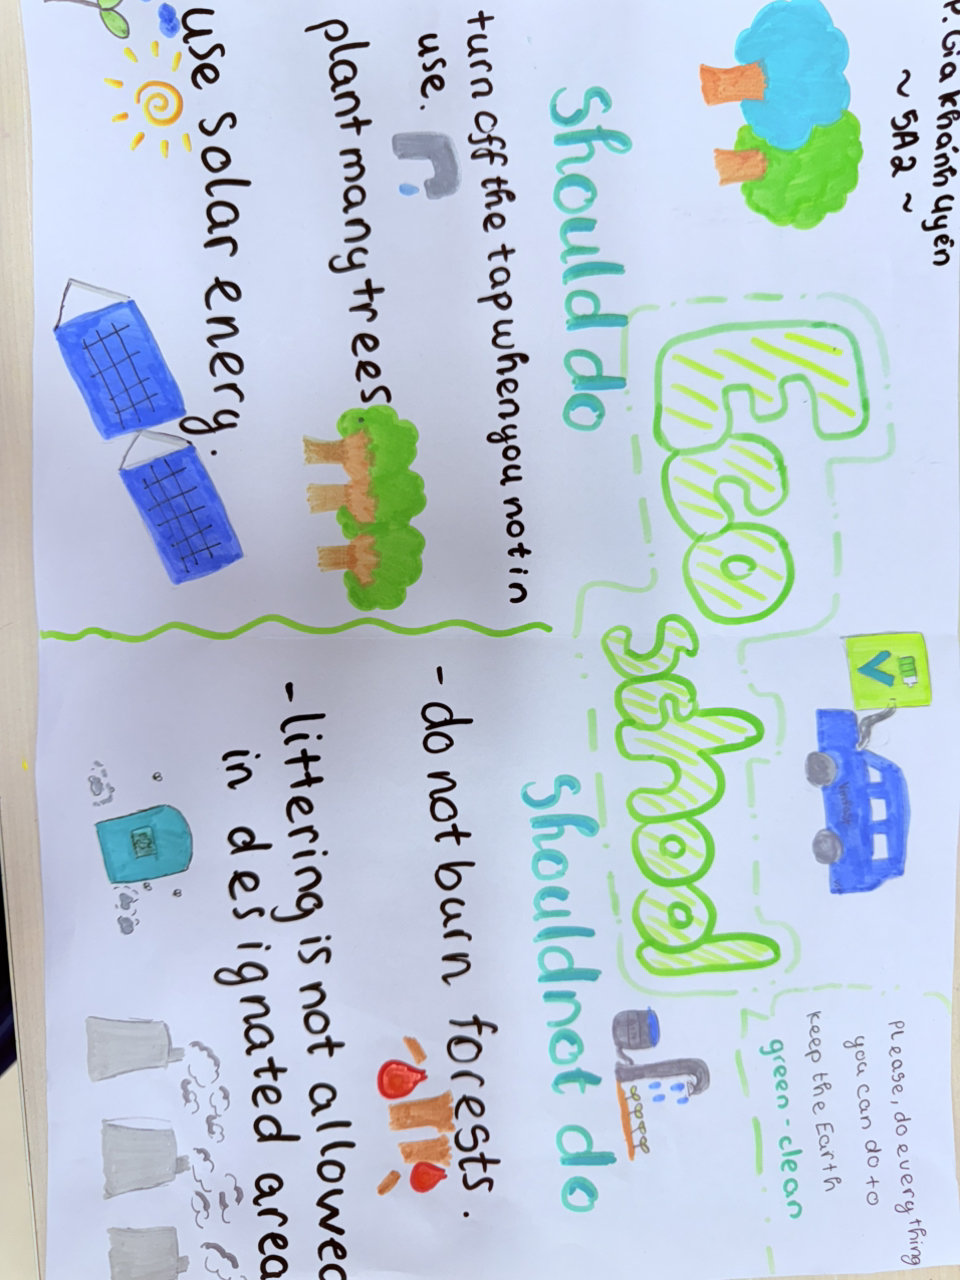 P. Gia Khánh Uyên
~ 5A2 ~
Eco
school
Please, do everything
you can do to
keep the Earth
green - clean
Should do
turn off the tap when you not in
use.
plant many trees
use solar energy.
Shouldnot do
- do not burn forests.
- littering is not allowed
in designated area